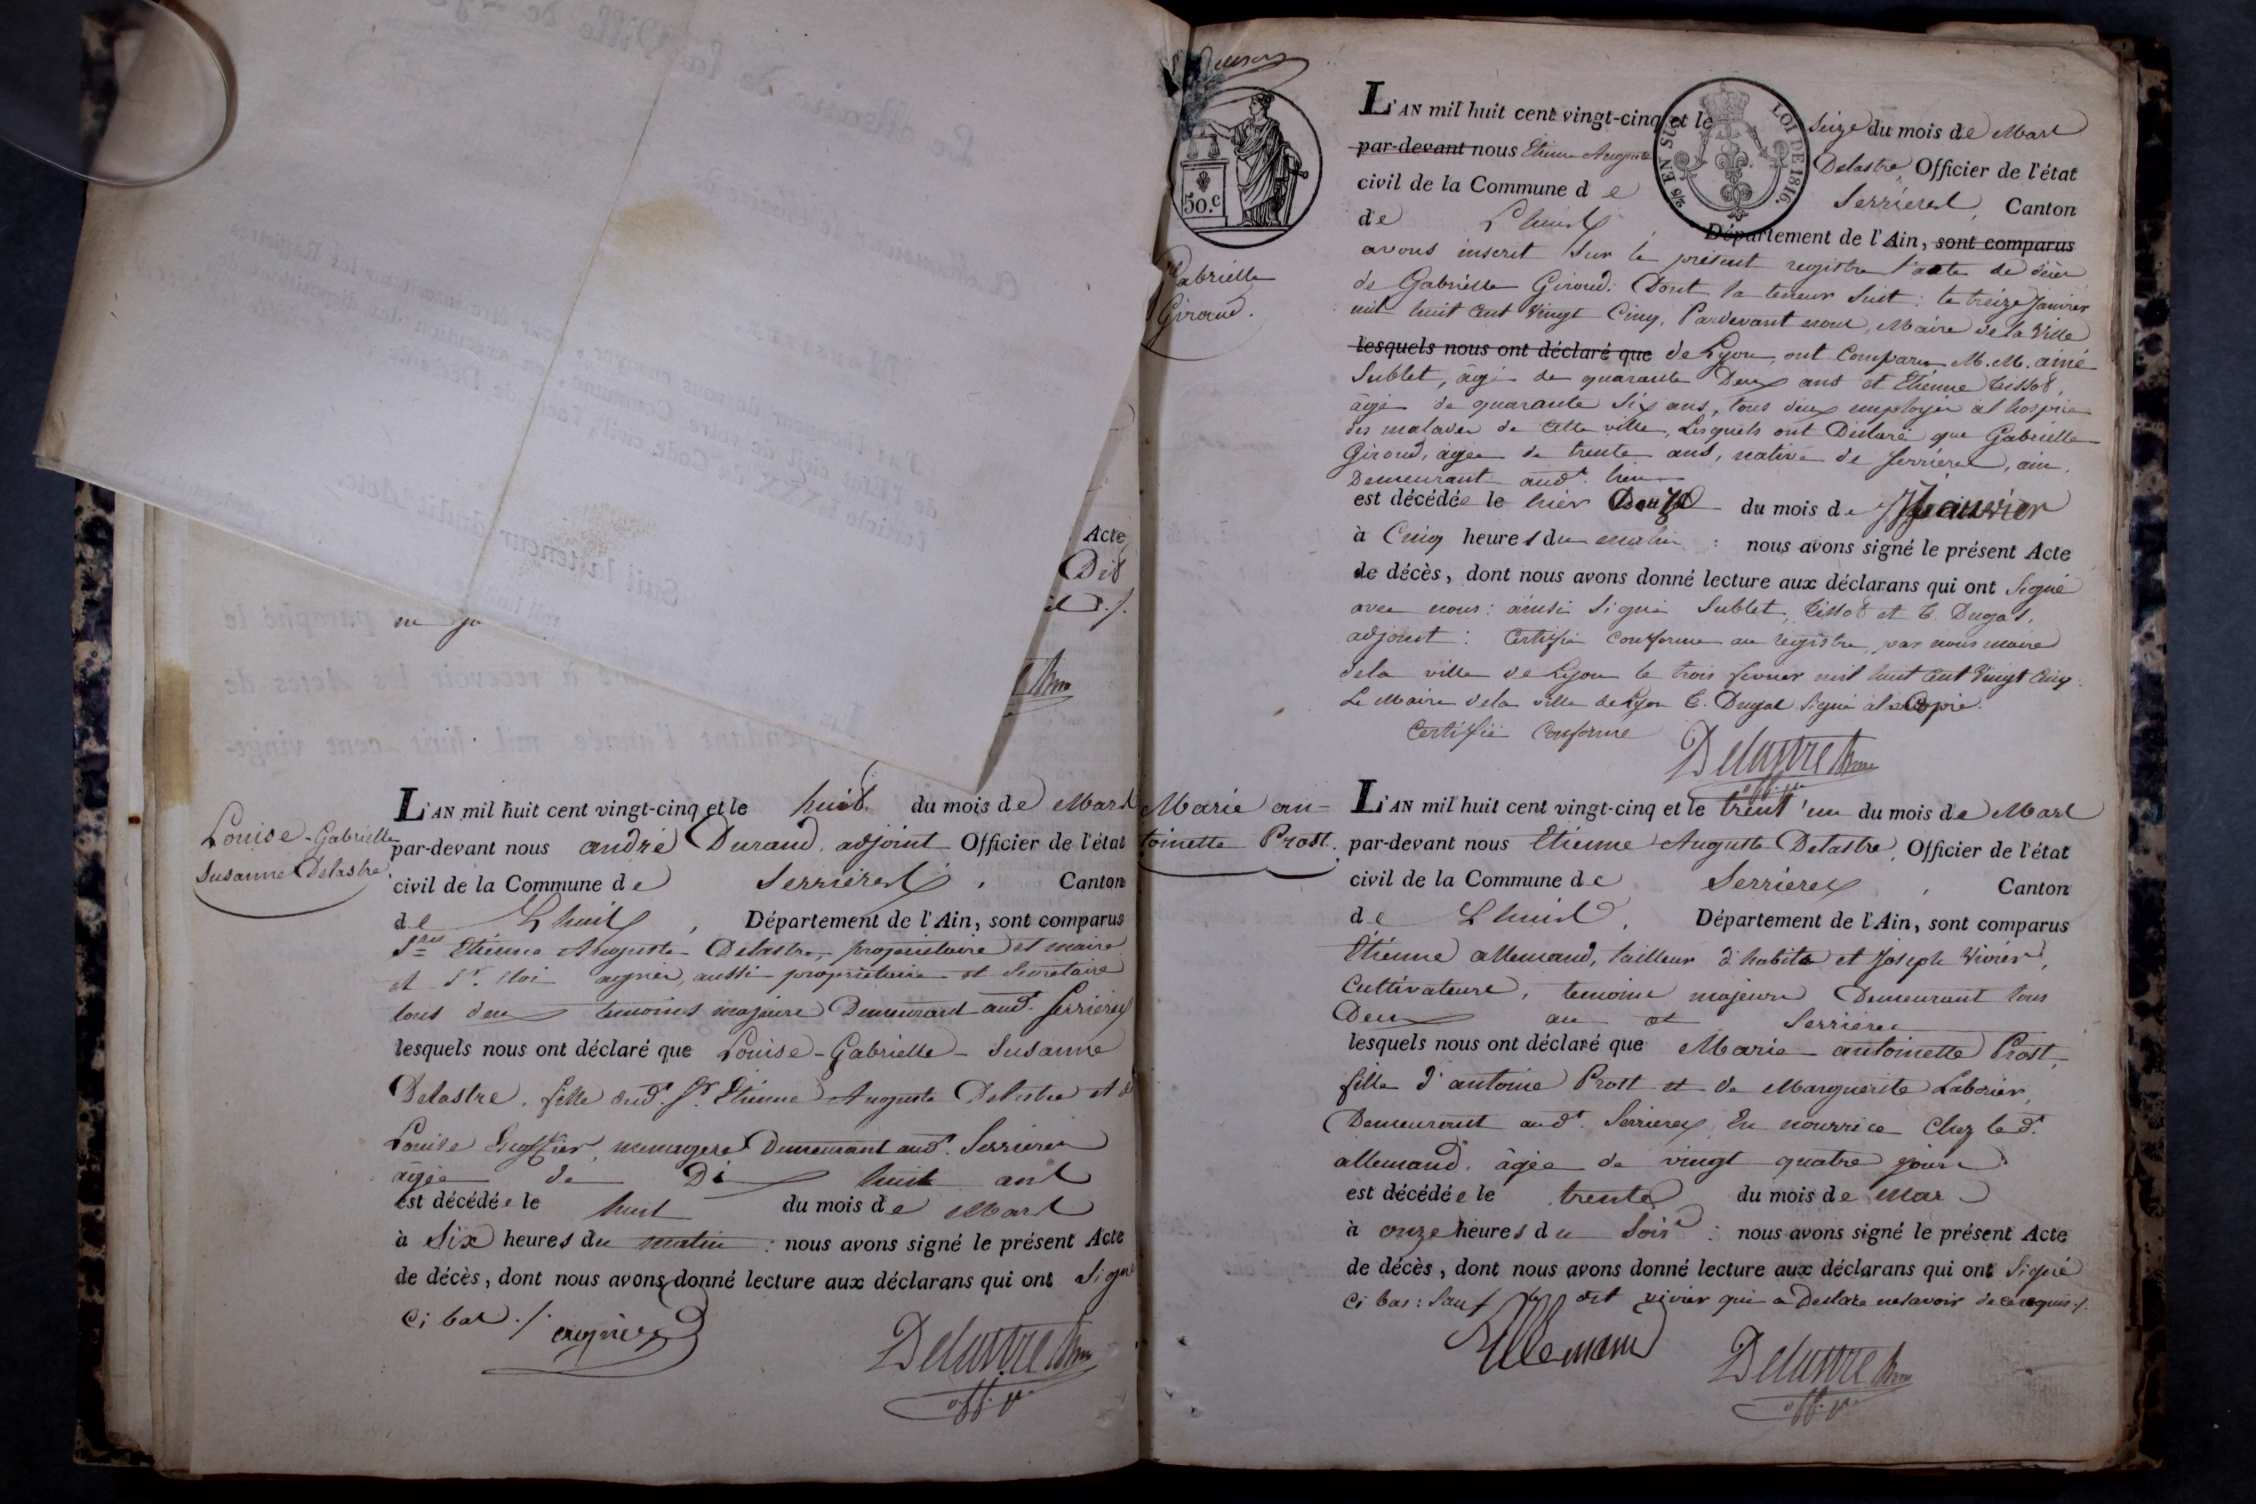 Acte
Dit
Louise-Gabrielle
Susanne Delastre.
L'AN mil huit cent vingt-cinq et le huit du mois de Mars
par-devant nous andré Durand, adjoint Officier de l'état
civil de la Commune de Serrières, Canton
de Lhuis, Département de l'Ain, sont comparus
Etienne Auguste Delastre, propriétaire et maire
et Sr. aussi propriétaire et Secretaire
tous deux temoins majeurs Demeurant aud. Serrières
lesquels nous ont déclaré que Louise-Gabrielle-Susanne
Delastre, fille dud. Sr. Etienne Auguste Delastre et de
Louise menagere Demeurant aud. Serrières
âgée de Dix huit ans
est décédée le huit du mois de Mars
à Six heures du matin : nous avons signé le présent Acte
de décès, dont nous avons donné lecture aux déclarans qui ont Signé
ci bas ./.
Delastre
50.C
Gabrielle
Giroud.
EN SUS
LOI DE 1816.
L'AN mil huit cent vingt-cinq et le Seize du mois de Mars
par-devant nous Etienne Auguste Delastre, Officier de l'état
civil de la Commune de Serrières, Canton
de Lhuis, Département de l'Ain, sont comparus
avons inscrit Sur le présent registre l'acte de décès
de Gabrielle Giroud. Dont la teneur Suit : le treize Janvier
mil huit cent Vingt Cinq, Pardevant nous, Maire de la Ville
lesquels nous ont déclaré que de Lyon, ont Comparu M.M. aimé
Sublet, âgé de quarante Deux ans et Etienne tissot,
âgé de quarante Six ans, tous deux employés à l'hospice
des malades de cette ville, Lesquels ont Déclaré que Gabrielle
Giroud, âgée de trente ans, native de Serrières, ain,
Demeurant aud. lieu
est décédée le hier Douze du mois de Janvier
à Cinq heures du matin : nous avons signé le présent Acte
de décès, dont nous avons donné lecture aux déclarans qui ont Signé
avec nous : ainsi Signé Sublet, tissot et E. Dugas,
adjoint : Certifié Conforme au registre, par nous maire
de la ville de Lyon le trois fevrier mil huit cent Vingt Cinq.
Le Maire de la ville de Lyon E. Dugas Signé à la Copie.
Certifié Conforme
Delastre
Marie an-
toinette Prost.
L'AN mil huit cent vingt-cinq et le trent'un du mois de Mars
par-devant nous Etienne Auguste Delastre, Officier de l'état
civil de la Commune de Serrières, Canton
de Lhuis, Département de l'Ain, sont comparus
Etienne allemand, tailleur d'habits et Joseph Vivier,
Cultivateurs, temoins majeurs Demeurant tous
Deux au dt Serrières
lesquels nous ont déclaré que Marie-antoinette Prost,
fille d'antoine Prost et de Marguerite Laborier,
Demeurant aud. Serrières, En nourrice Chez le d.
allemand, âgée de vingt quatre jours
est décédée le trente du mois de mars
à onze heures du Soir : nous avons signé le présent Acte
de décès, dont nous avons donné lecture aux déclarans qui ont Signé
Ci bas : Sauf le dit vivier qui a Déclaré ne savoir de ce requis ./.
Allemand
Delastre